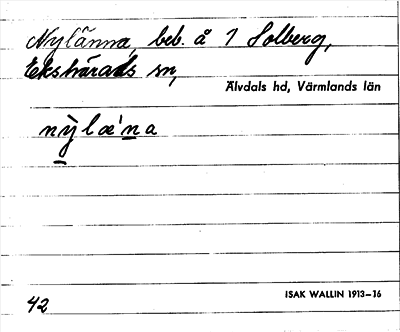 Nylänna, beb. å 1 Solberg,
Ekshärads sn,
Älvdals hd, Värmlands län
nỳlæ'na
ISAK WALLIN 1913–16
42